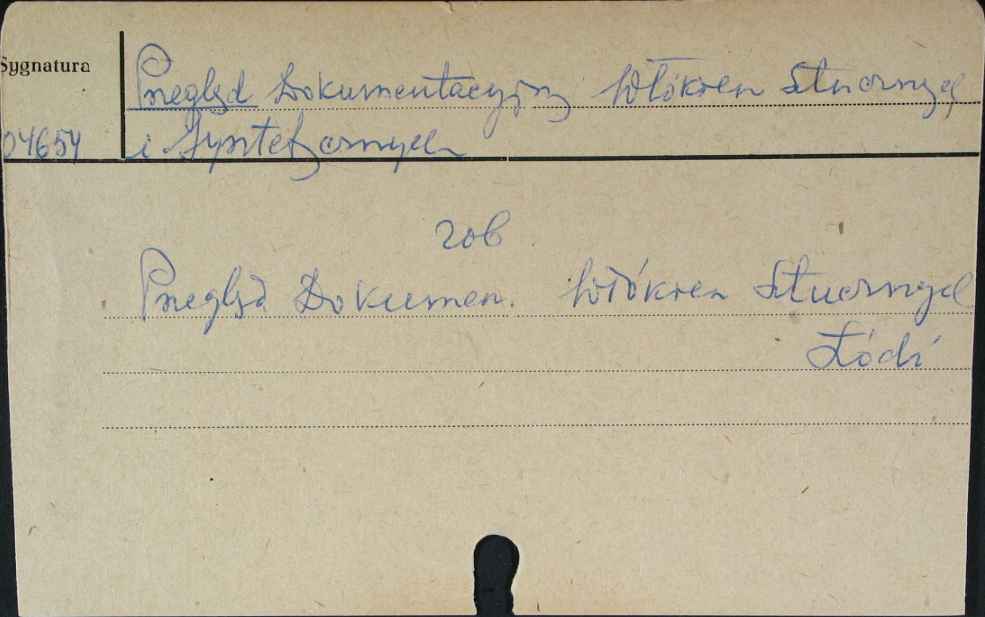 Sygnatura
Przegląd Dokumentacyjny Włókien Sztucznych
04654
i Syntetycznych
zob
Przegląd Dokumen. Włókien Sztucznych
Łódź